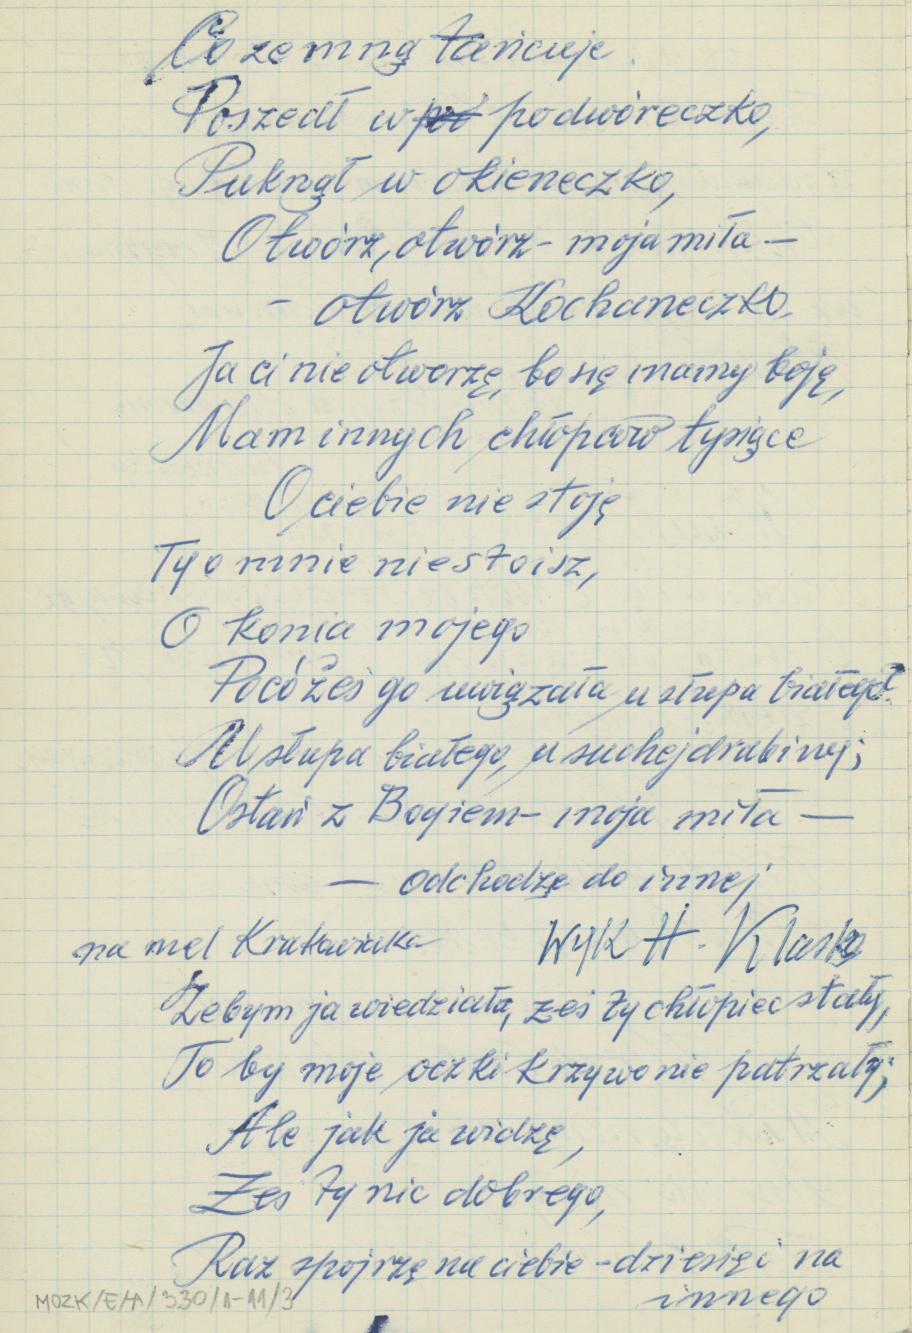 Co ze mną tańcuje
Poszedł w pod podwóreczko,
Puknął w okieneczko,
Otwórz, otwórz - moja miła -
- otwórz Kochaneczko.
Ja ci nie otworzę, bo się mamy boję,
Mam innych chłopców tysiące
O ciebie nie stoję
Ty o mnie nie stoisz,
O konia mojego
Pocóżeś go uwiązała u słupa białego?
U słupa białego, u suchej drabiny;
Ostań z Bogiem - moja miła -
- odchodzę do innej
na mel Krakowiaka Wyk H. Klaska
Żebym ja wiedziała, żeś ty chłopiec stały,
To by moje oczki krzywo nie patrzały;
Ale jak ja widzę,
Żeś ty nic dobrego,
Raz spojrzę na ciebie - dziesięć na
innego
MOZK/E/A/330/1-11/3